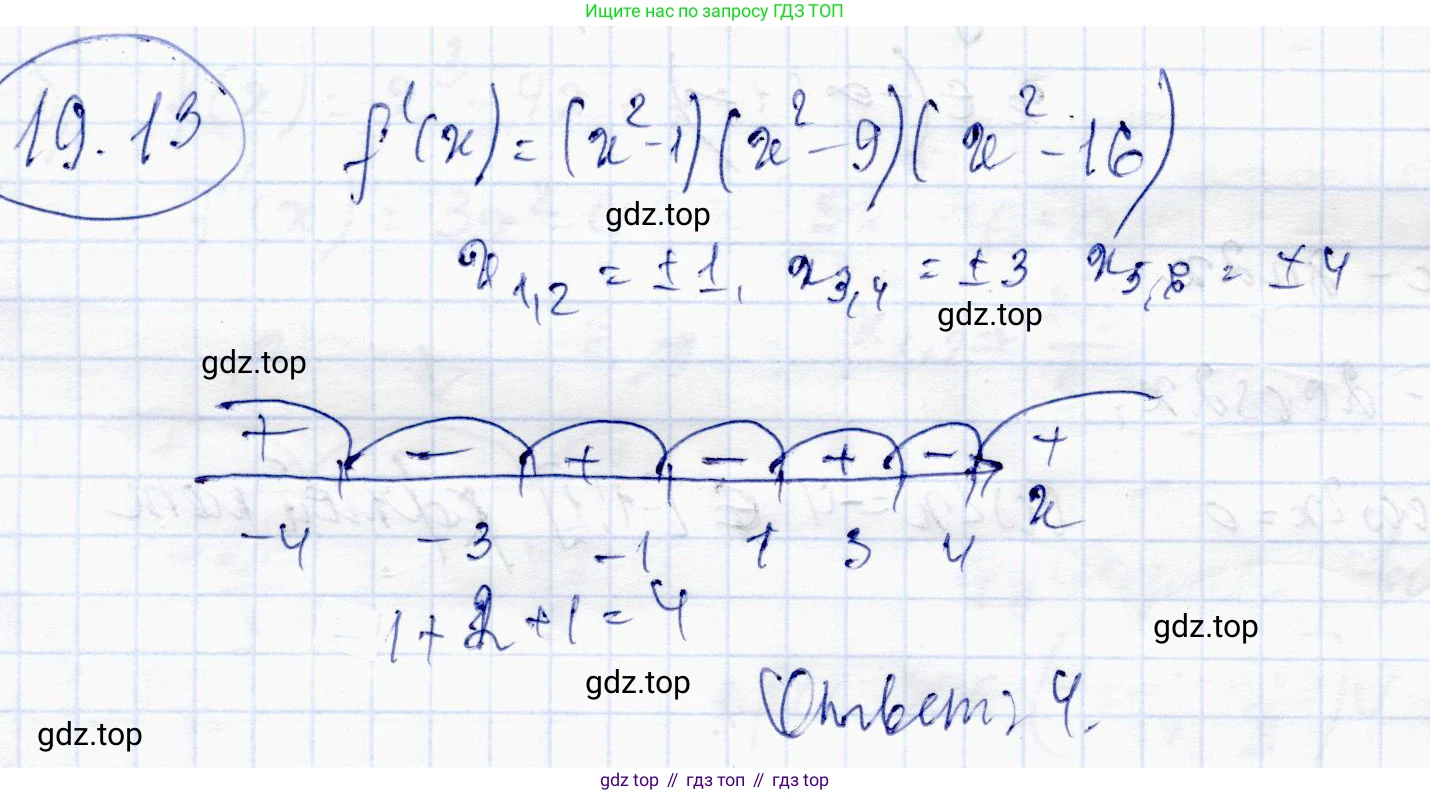 Ищите нас по запросу ГДЗ ТОП
19.13 f'(x) = (x²-1)(x²-9)(x²-16)
gdz.top
x₁,₂ = ±1, x₃,₄ = ±3 x₅,₆ = ±4
gdz.top
gdz.top
+ - + - + - +
x
-4 -3 -1 1 3 4
1+2+1=4
gdz.top
gdz.top
Ответ: 4.
gdz.top
gdz top // гдз топ // gdz top